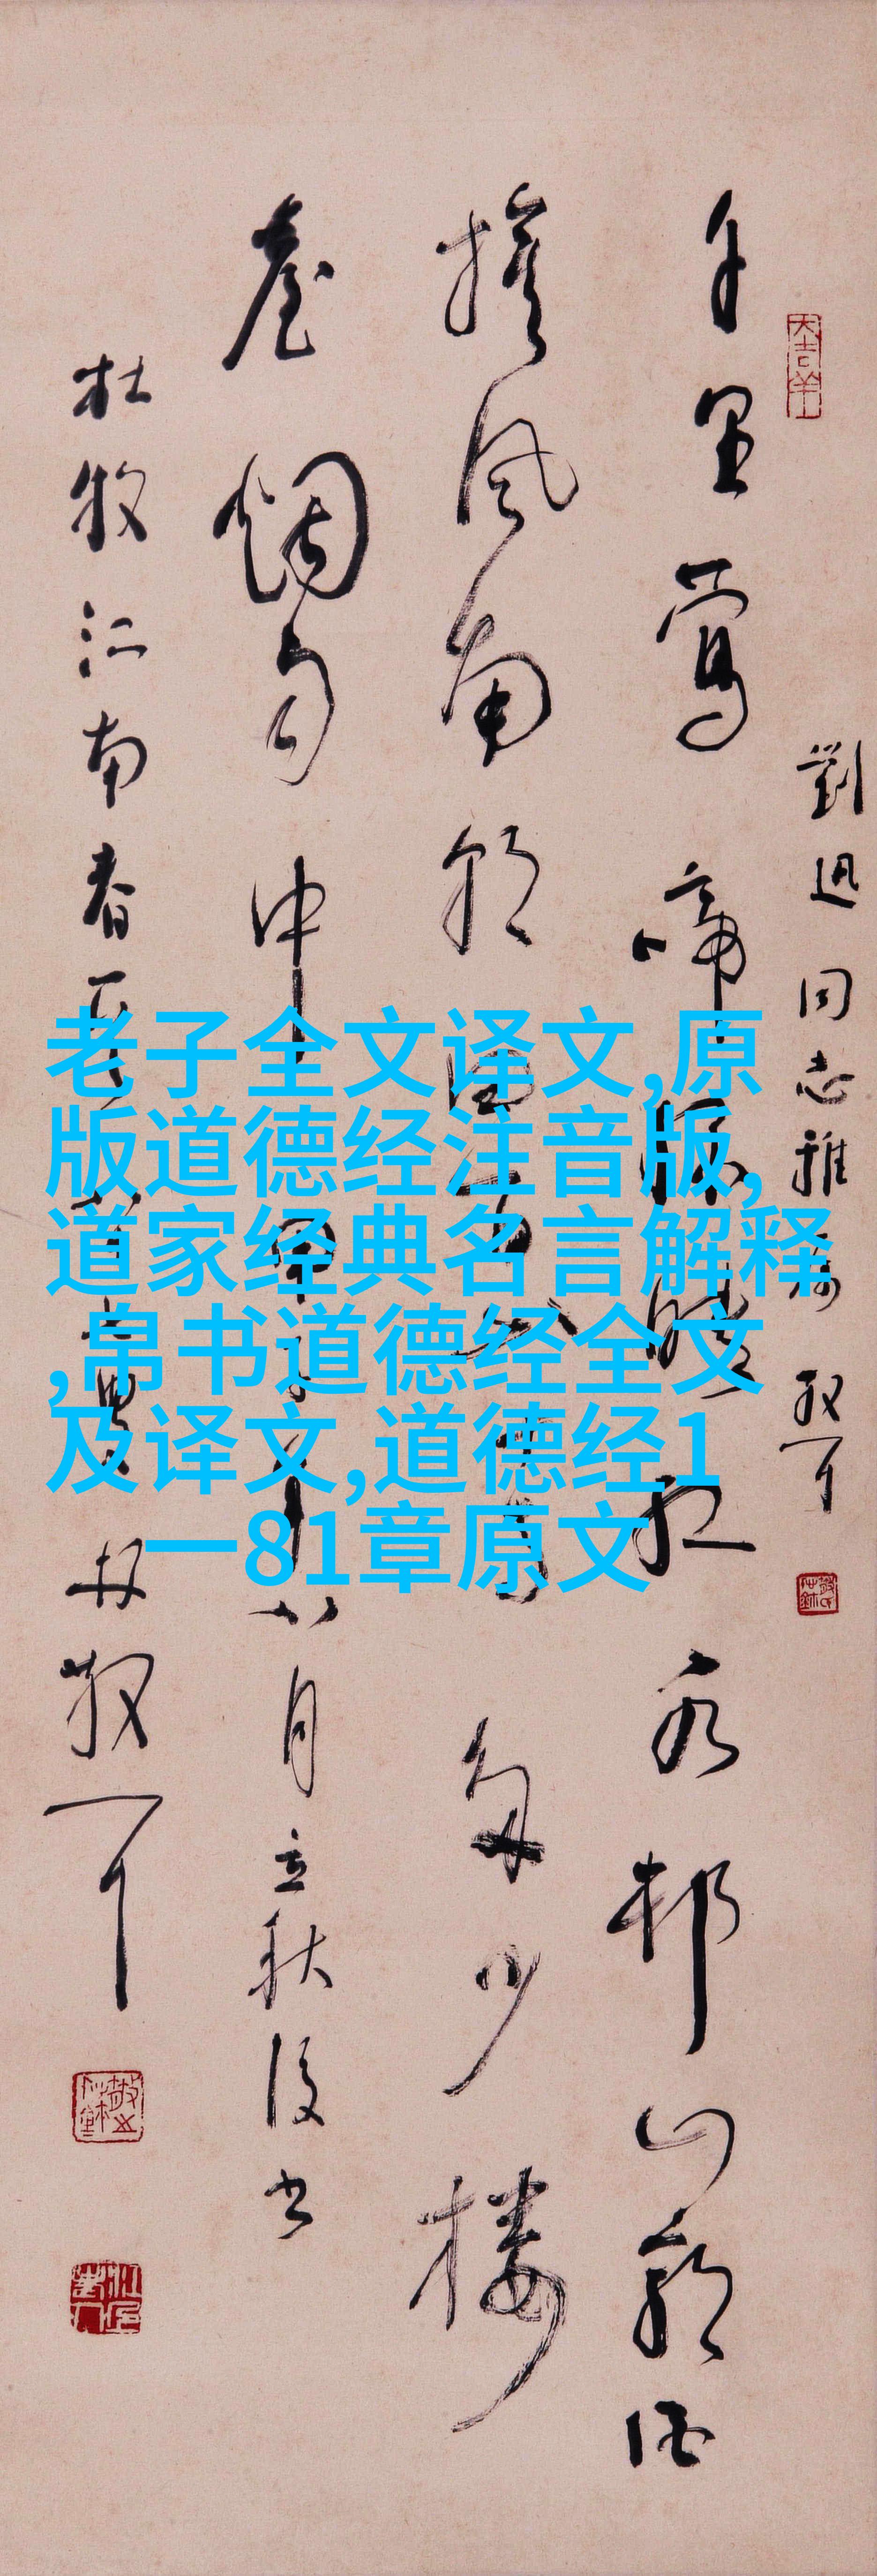 千里莺啼绿映红水邨山郭酒
旗风南朝四百八十寺多少楼
臺烟雨中
八月立秋後书
杜牧江南春
林散耳
劉迅同志雅
散耳
大吉羊
老子全文译文,原
版道德经注音版,
道家经典名言解释
,帛书道德经全文
及译文,道德经1
一81章原文